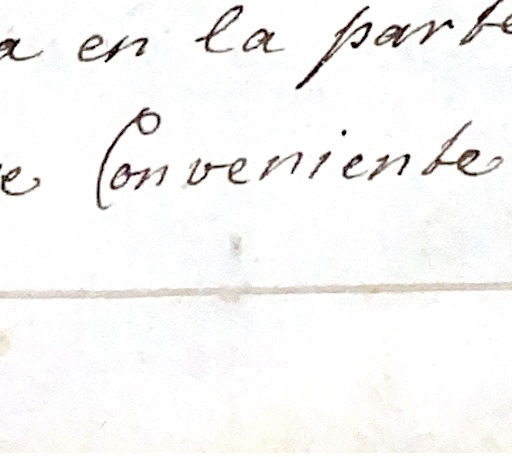 a en la parte
e Conveniente